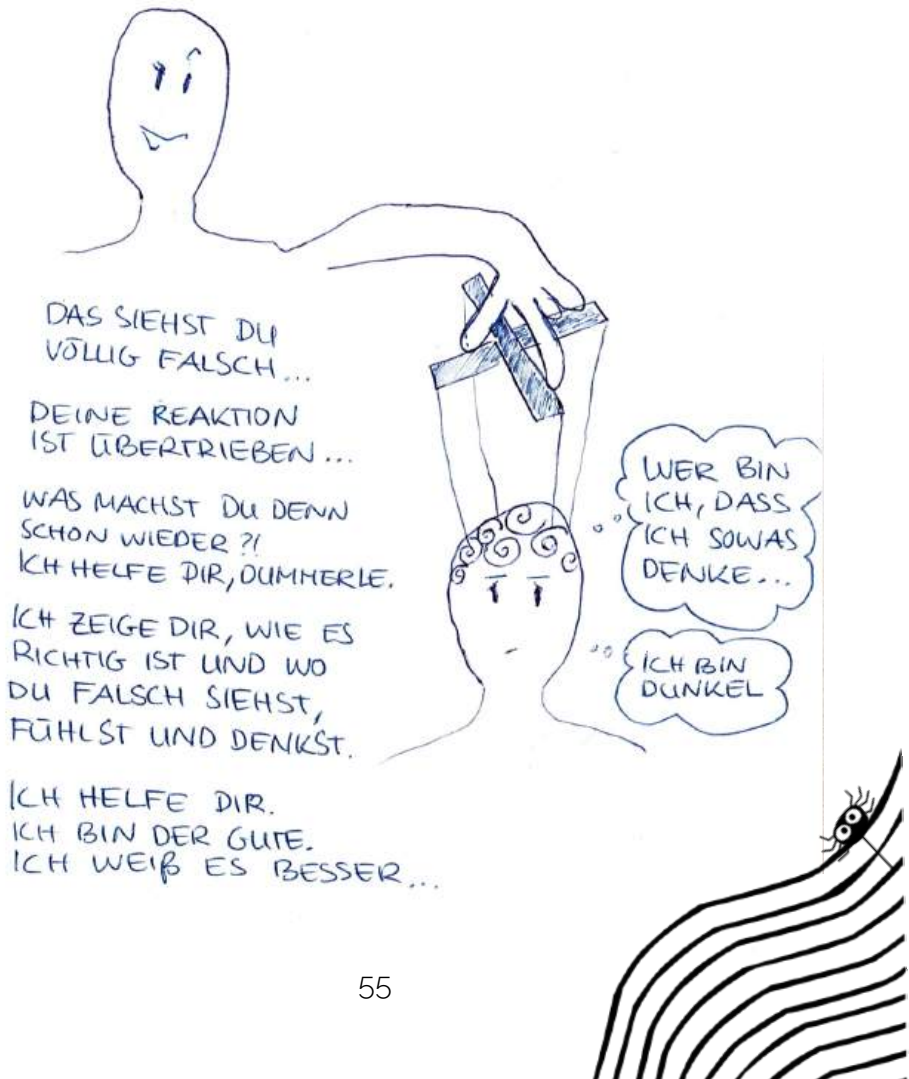 DAS SIEHST DU
VÖLLIG FALSCH...
DEINE REAKTION
IST ÜBERTRIEBEN...
WAS MACHST DU DENN
SCHON WIEDER?!
ICH HELFE DIR, DUMMERLE.
ICH ZEIGE DIR, WIE ES
RICHTIG IST UND WO
DU FALSCH SIEHST,
FÜHLST UND DENKST.
ICH HELFE DIR.
ICH BIN DER GUTE.
ICH WEIß ES BESSER...
WER BIN
ICH, DASS
ICH SOWAS
DENKE...
ICH BIN
DUNKEL
55